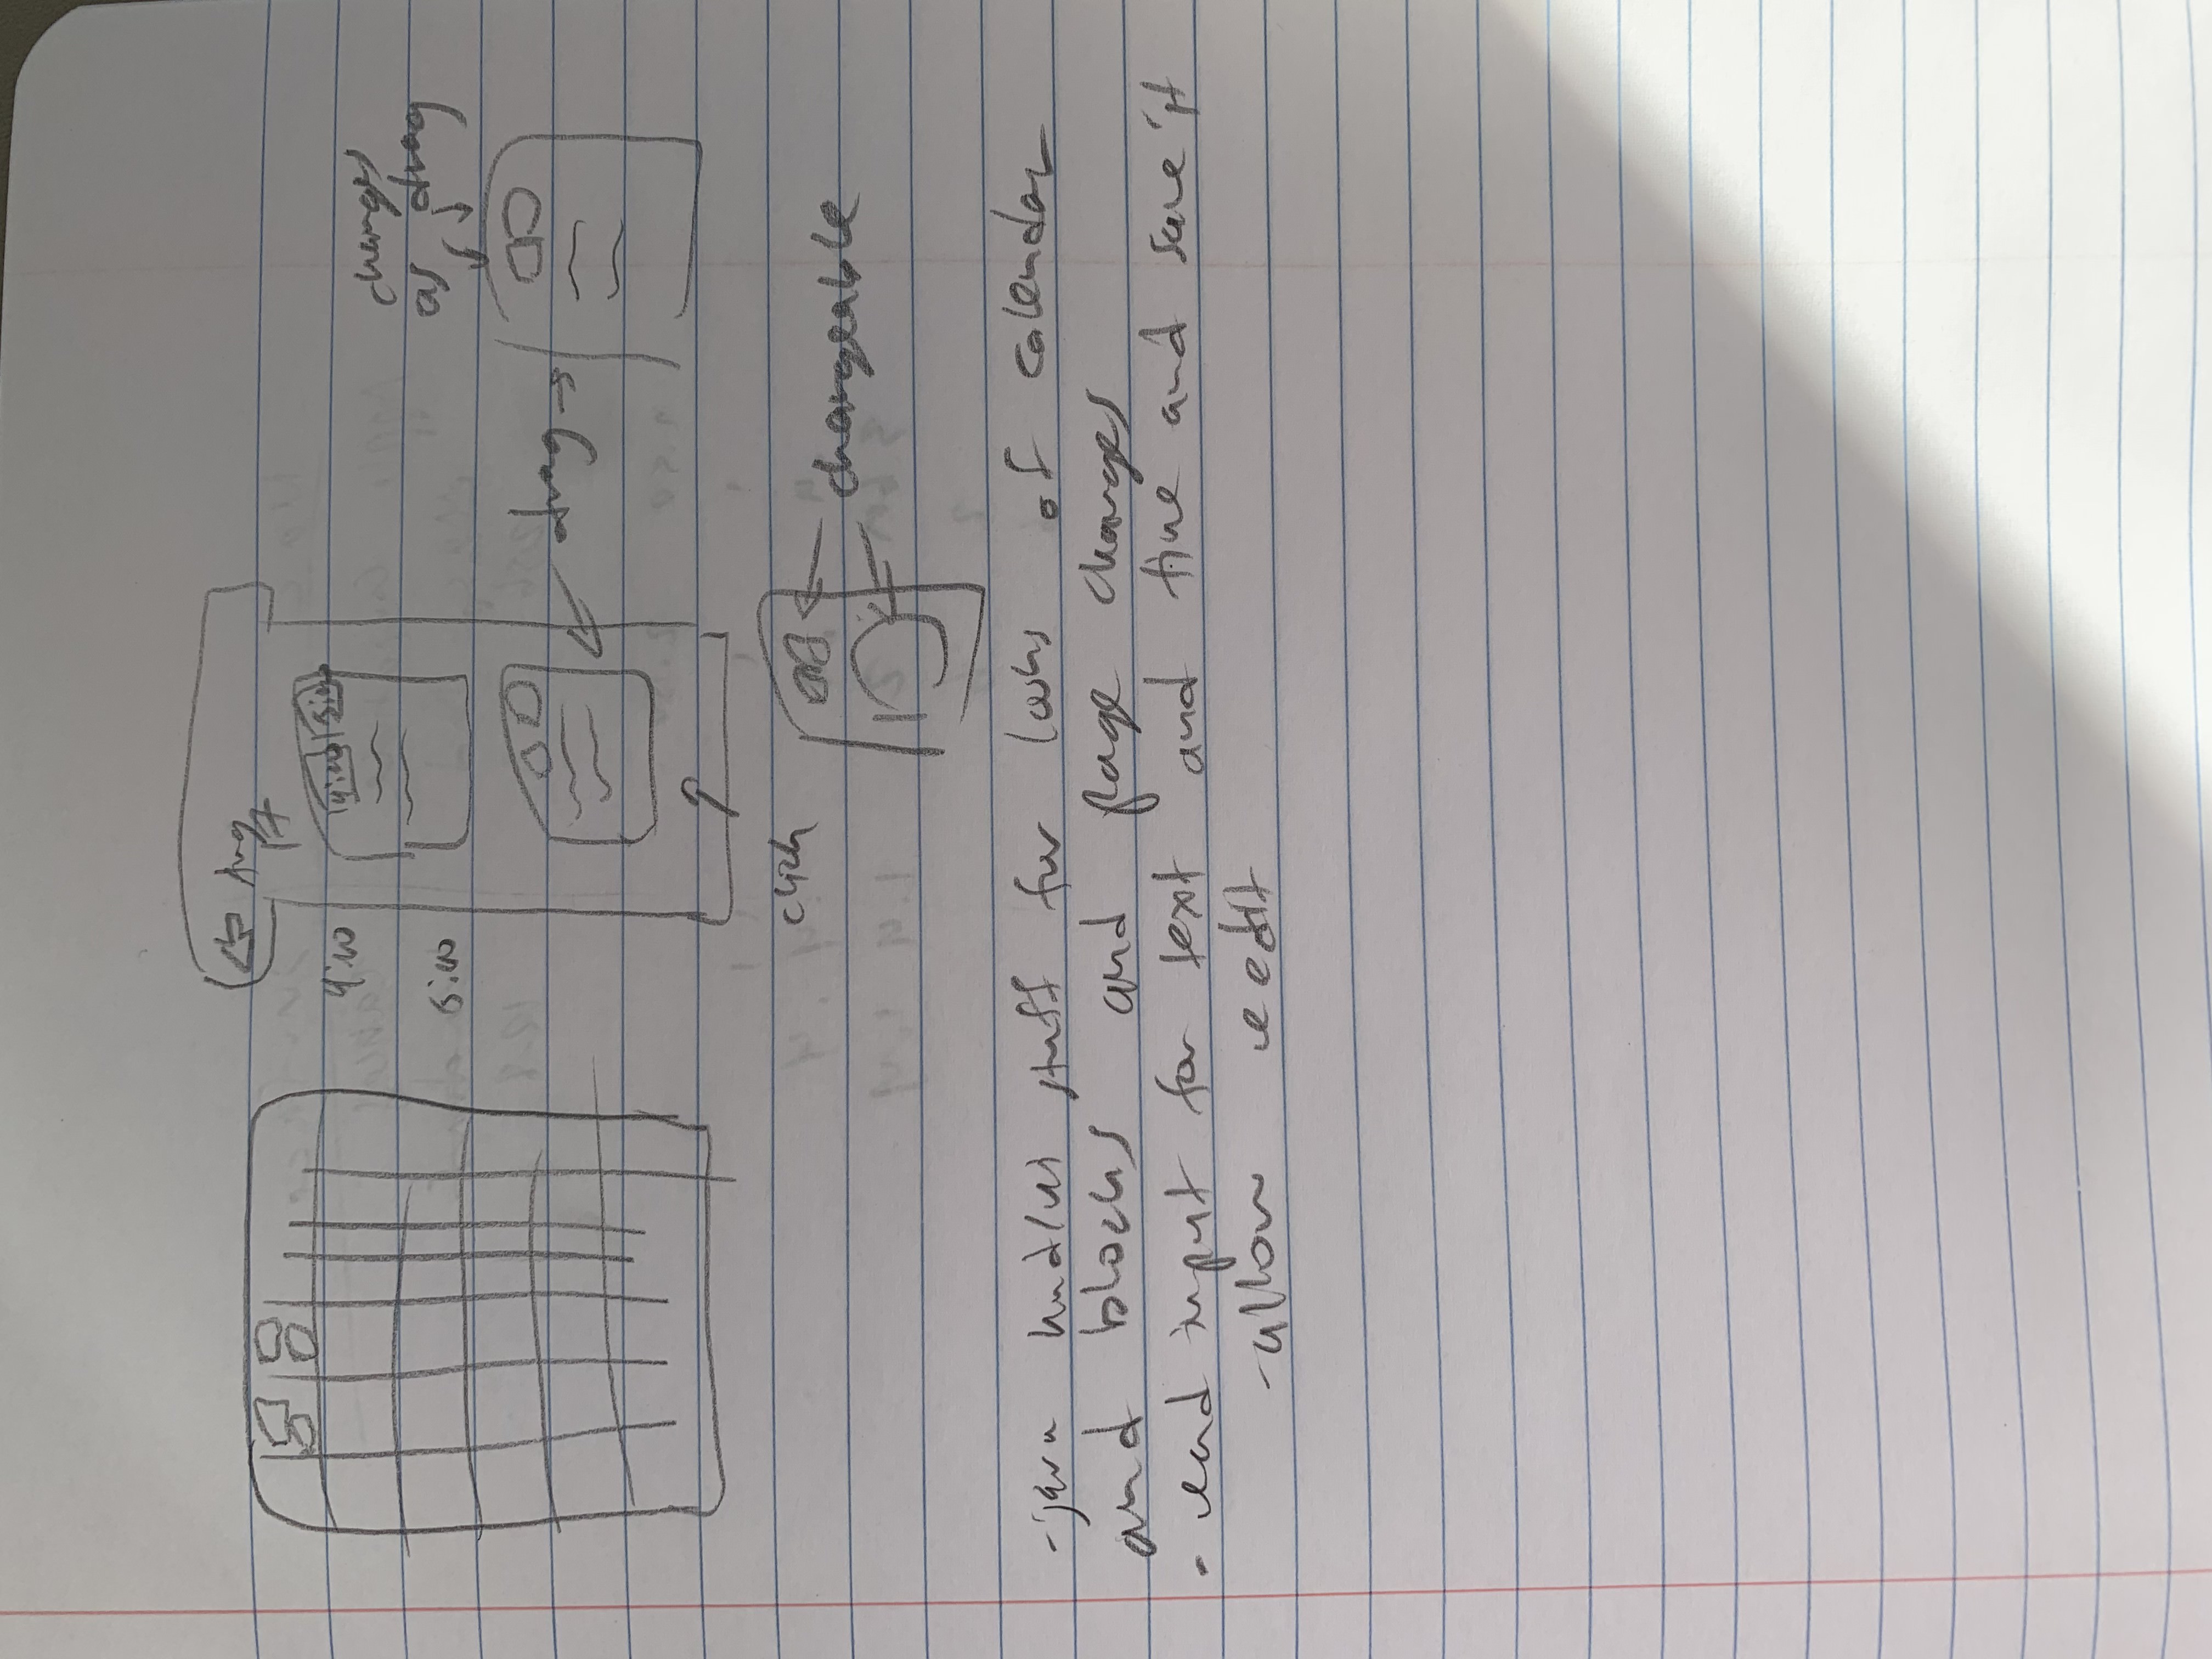 Aug
17
4:00
4:00 5:00
5:00
changes
as drag
drag →
click
changeable
-java handles stuff for looks of calendar
and blocks and page changes
- read input for text and time and save it
-allow reedit